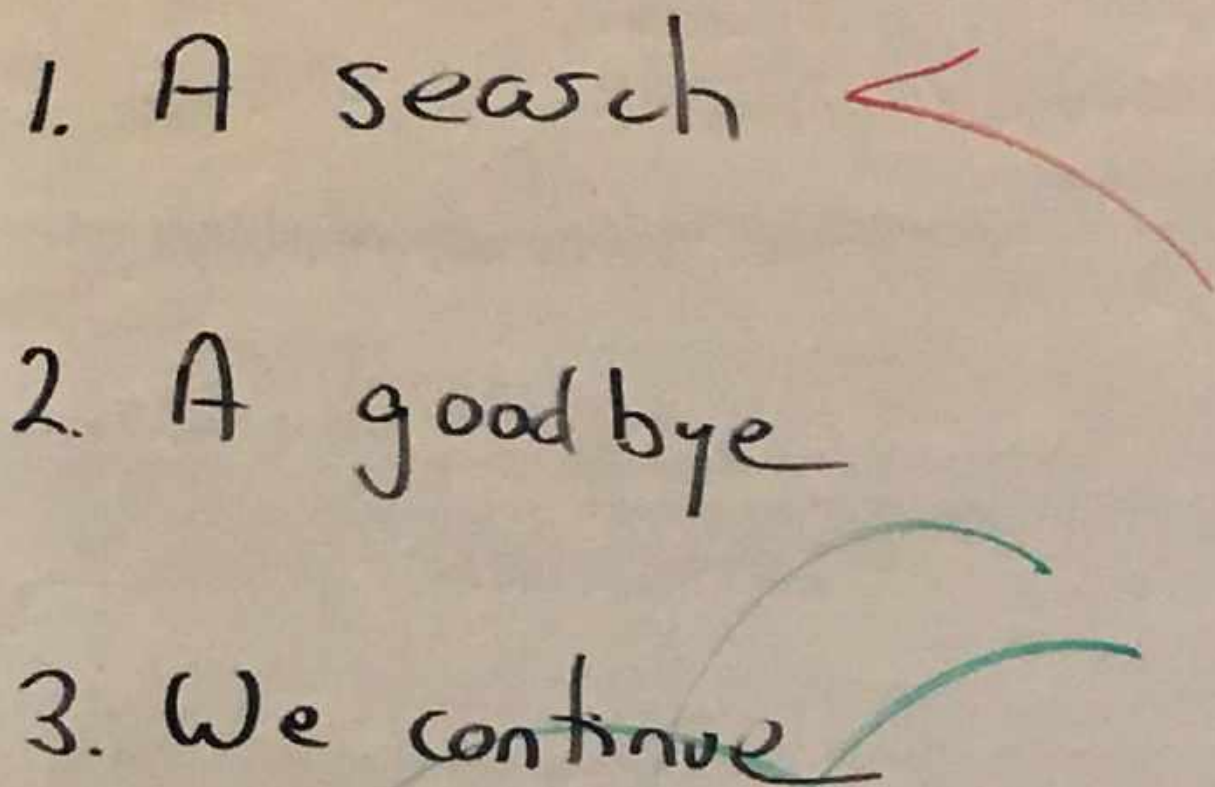 1. A search
2. A goodbye
3. We continue